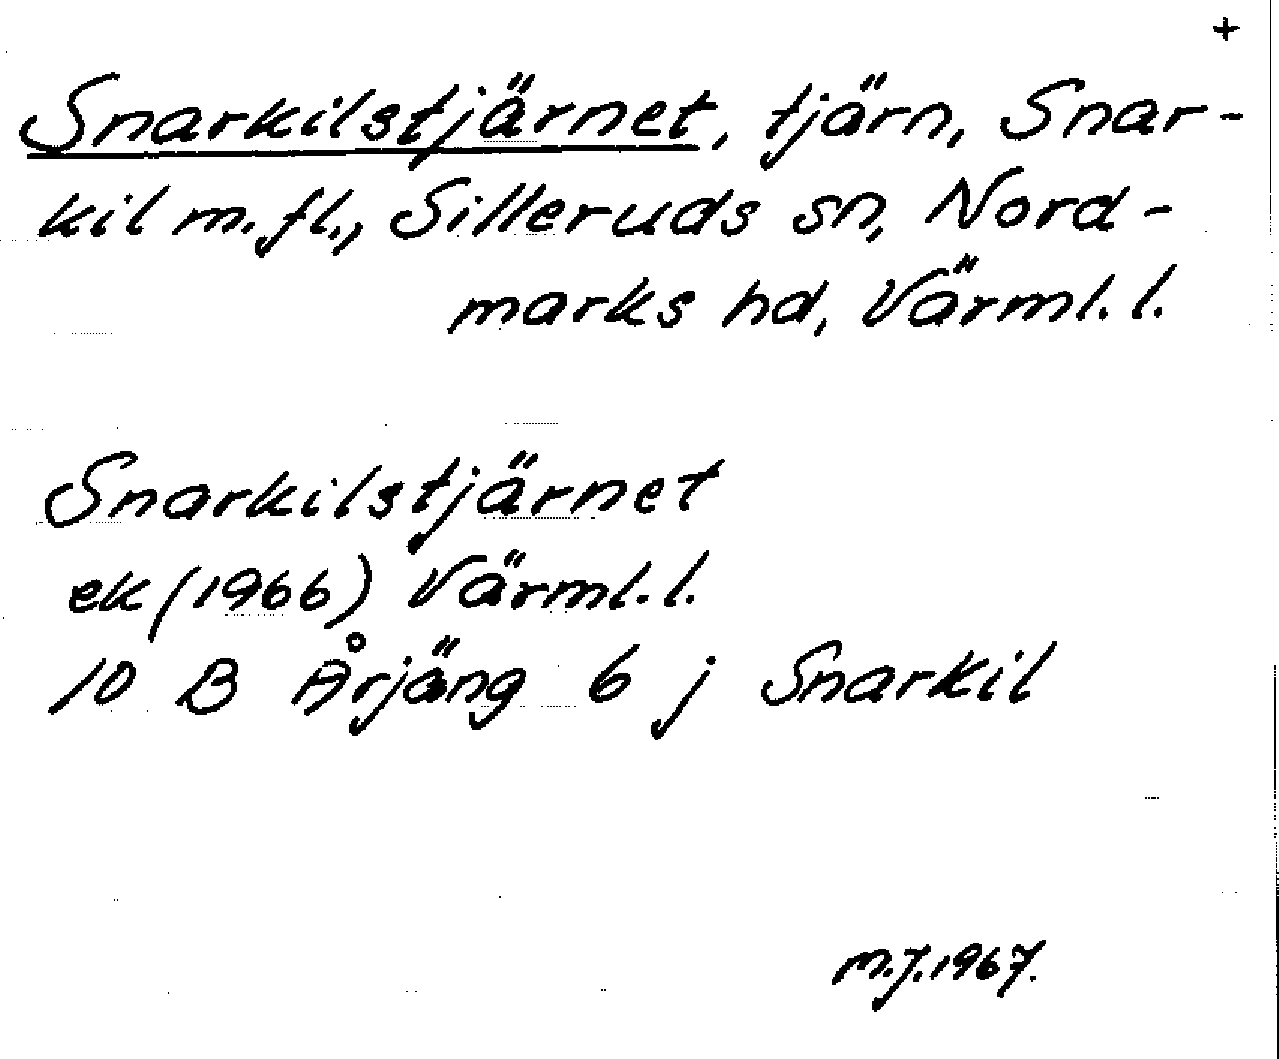 +
Snarkilstjärnet, tjärn, Snar-
kil m.fl., Silleruds sn, Nord-
marks hd, Värml. l.
Snarkilstjärnet
ek (1966) Värml. l.
10 B Årjäng 6 j Snarkil
M.J. 1967.